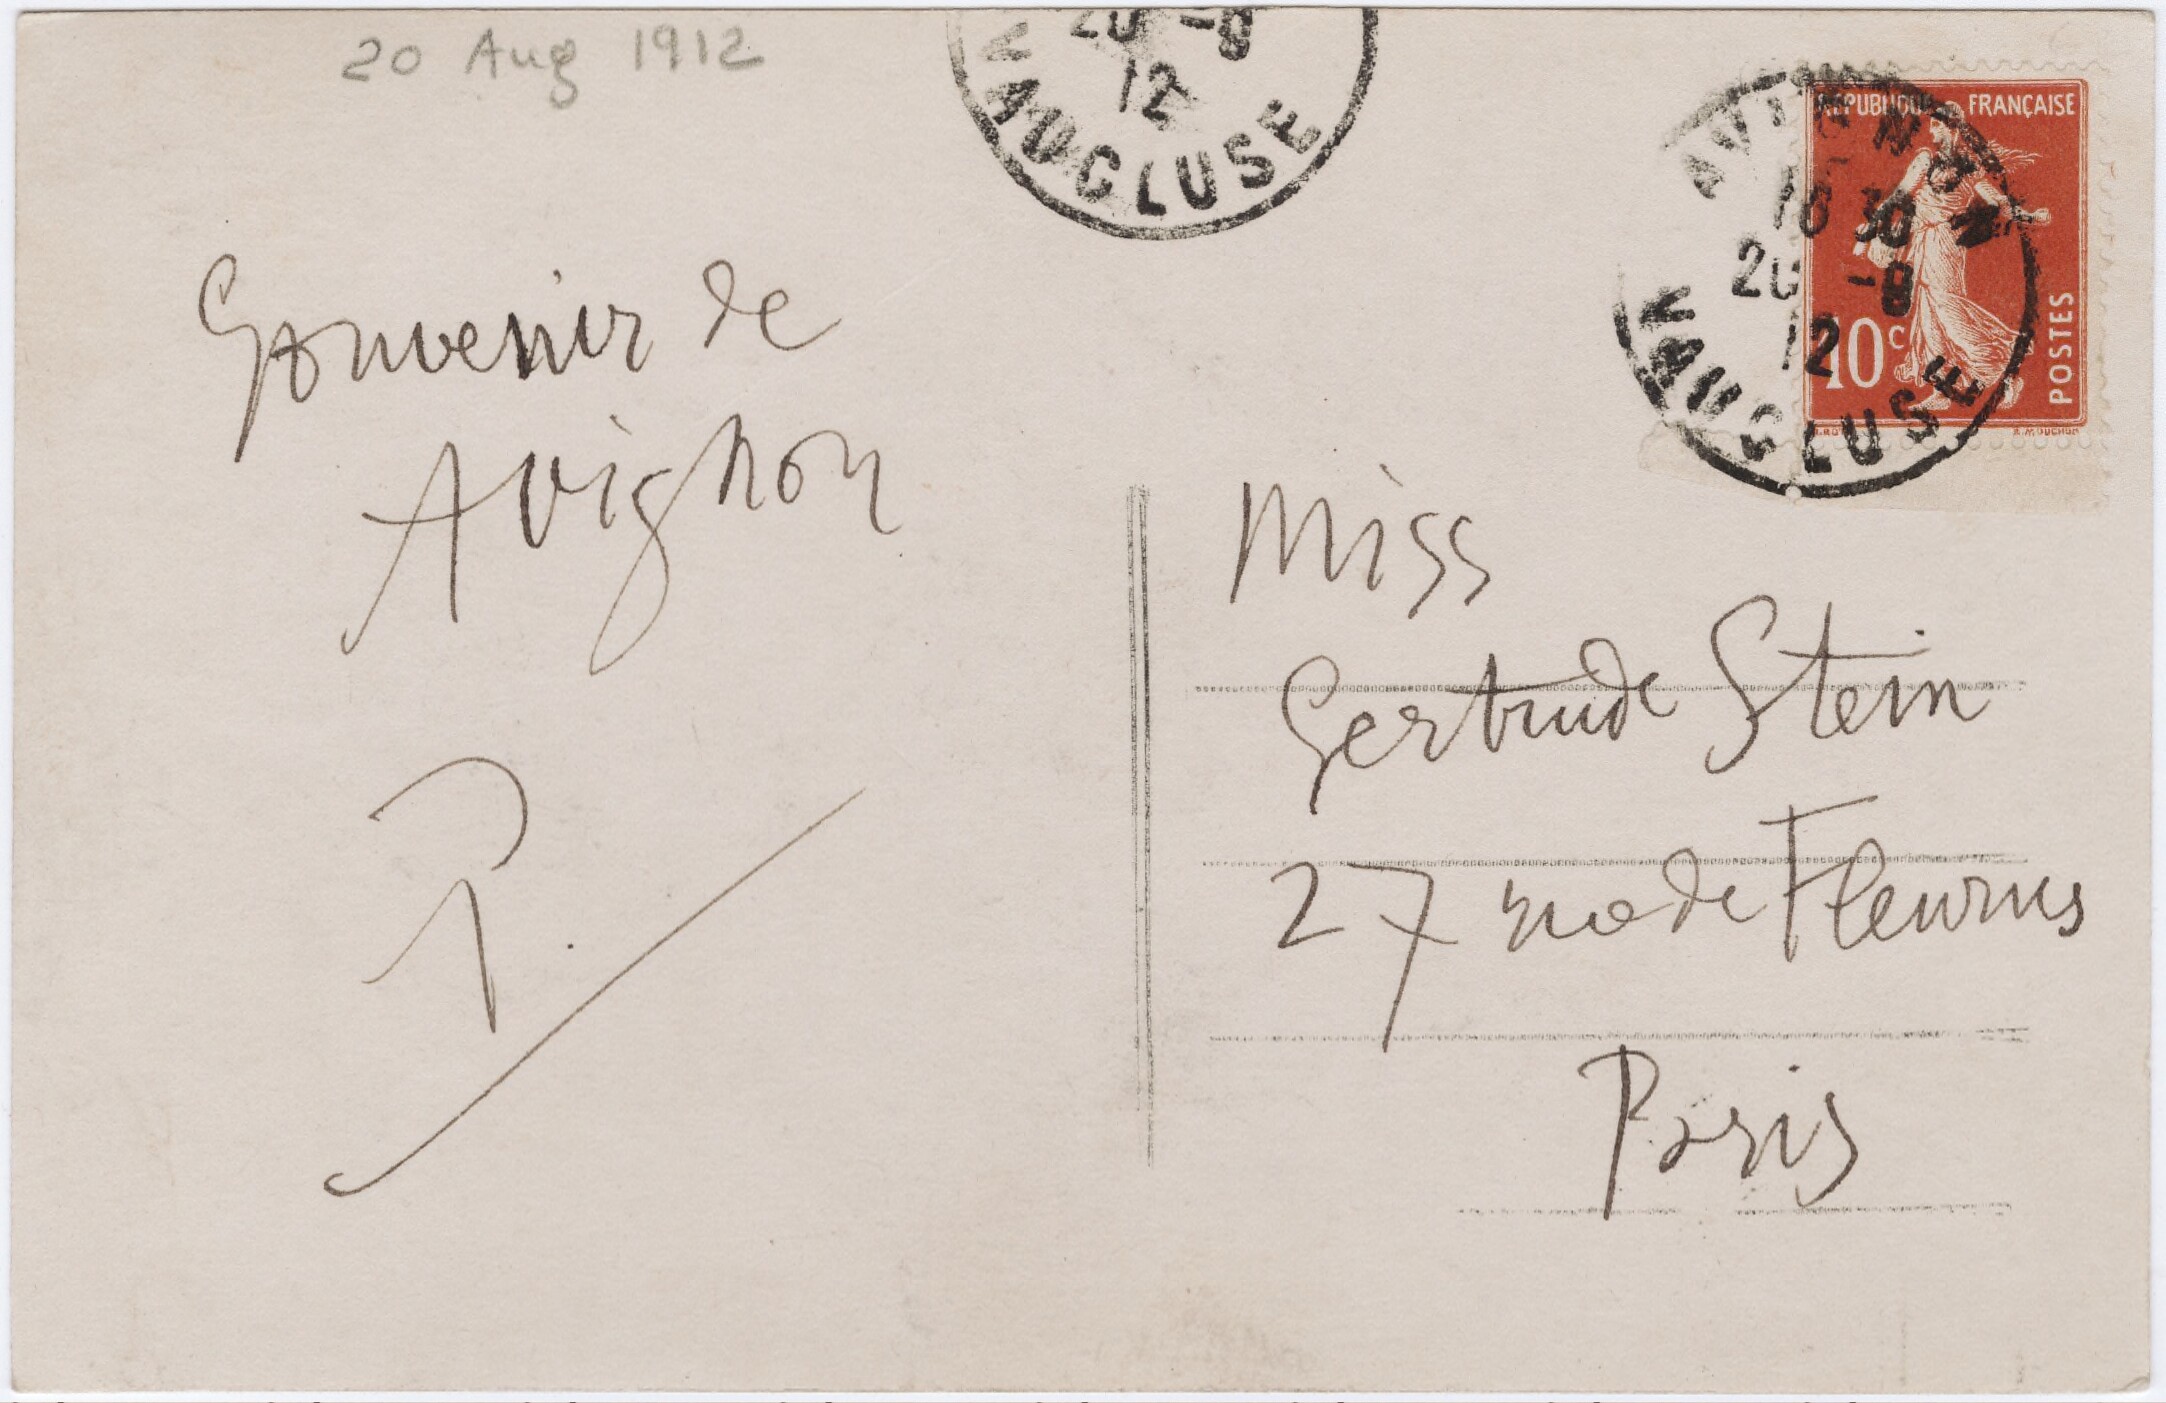 20 Aug 1912
20 -8
12
VAUCLUSE
REPUBLIQUE FRANÇAISE
AVIGNON
16 30
20 -8
12
VAUCLUSE
10c
POSTES
E. MOUCHON
Souvenir de
Avignon
P.
Miss
Gertrude Stein
27 rue de Fleurus
Paris